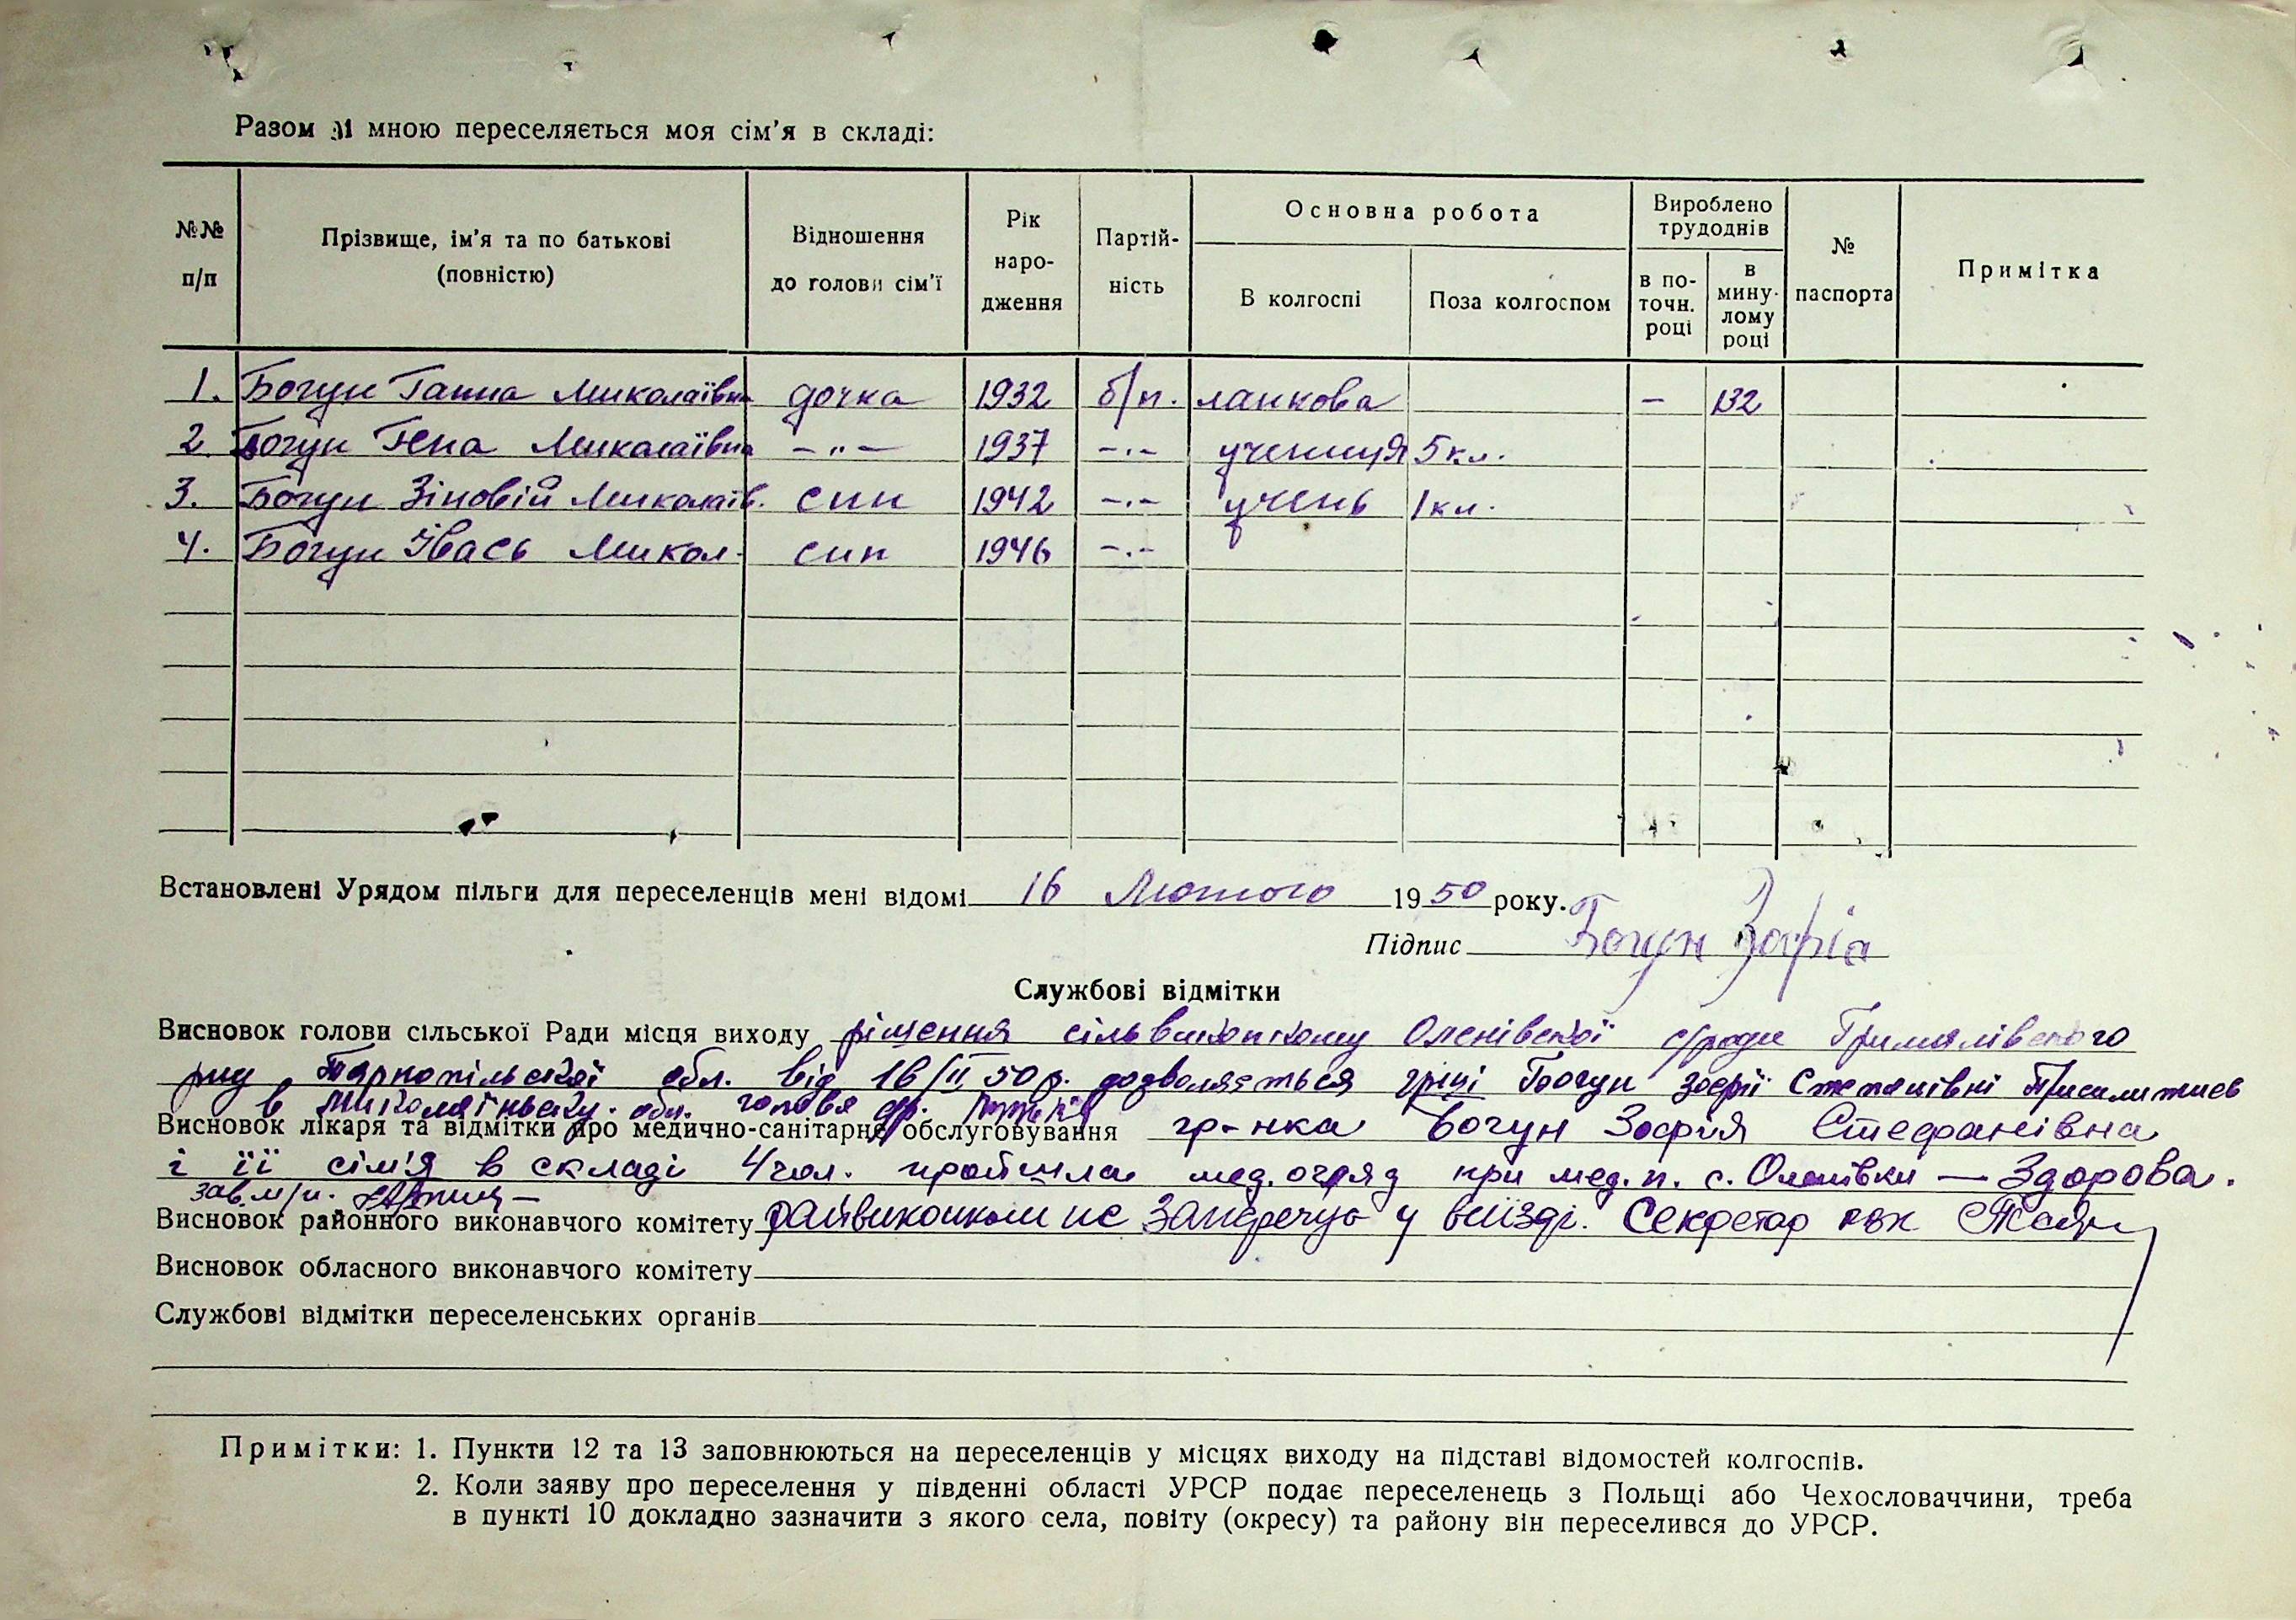 Разом зі мною переселяється моя сім'я в складі:
№№ п/п | Прізвище, ім'я та по батькові (повністю) | Відношення до голови сім'ї | Рік народження | Партійність | Основна робота | Вироблено трудоднів | № паспорта | Примітка
В колгоспі | Поза колгоспом | в поточн. році | в минулому році
1. Богун Ганна Миколаївна дочка 1932 б/п. ланкова – 132
2. Богун Миколаївна –"– 1937 –"– учениця 5 кл.
3. Богун Зіновій Миколаїв. син 1942 –"– учень 1 кл.
4. Богун Івась Микол. син 1946 –"–
Встановлені Урядом пільги для переселенців мені відомі 16 Лютого 1950 року.
Підпис Богун Зофіа
Службові відмітки
Висновок голови сільської Ради місця виходу рішення сільвиконкому Оленівської с/ради Гримайлівского
р-ну Тернопільської обл. від 16/II 50р. дозволяється гр-ці Богун Зофії Степанівні
в Миколаївську обл. голова с/р.
Висновок лікаря та відмітки про медично-санітарне обслуговування гр-нка Богун Зофія Стефанівна
і її сім'я в складі 4 чол. пройшла мед. огляд при мед. п. с. Оленівки — Здорова.
зав. м/п.
Висновок районного виконавчого комітету райвиконком не заперечує у виїзді. Секретар рвк
Висновок обласного виконавчого комітету
Службові відмітки переселенських органів
Примітки: 1. Пункти 12 та 13 заповнюються на переселенців у місцях виходу на підставі відомостей колгоспів.
2. Коли заяву про переселення у південні області УРСР подає переселенець з Польщі або Чехословаччини, треба
в пункті 10 докладно зазначити з якого села, повіту (окресу) та району він переселився до УРСР.